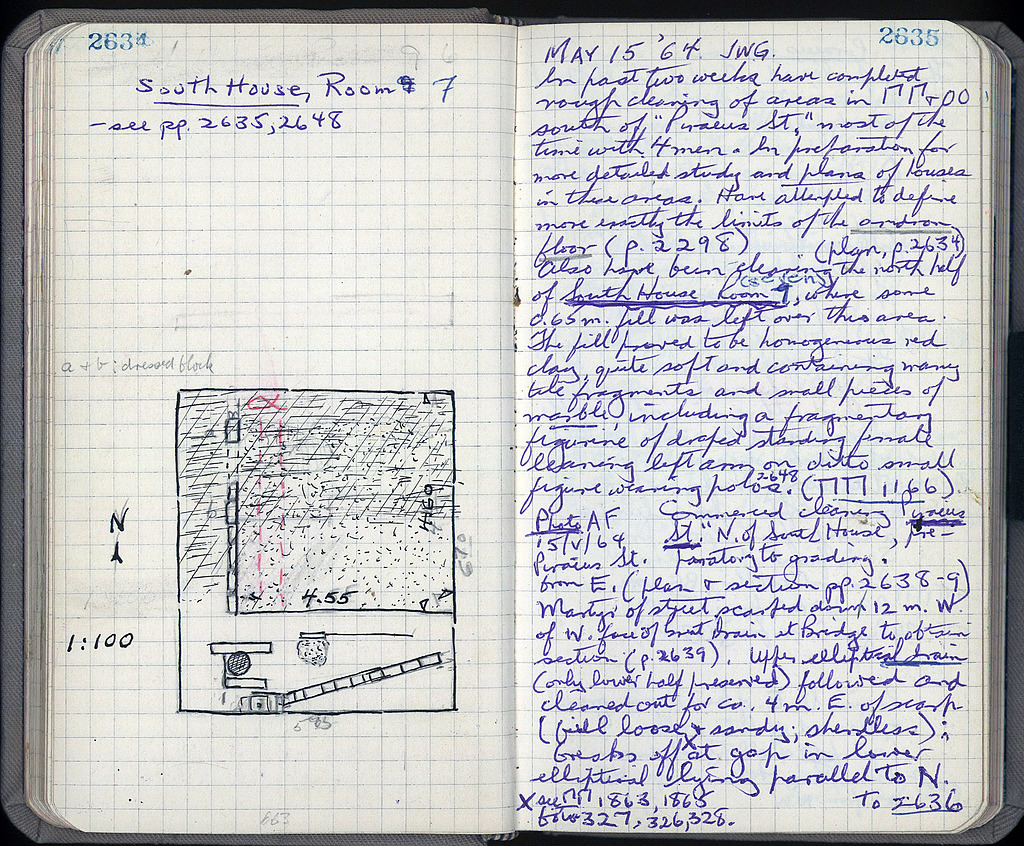 2634
South House, Room 7
- see pp. 2635, 2648
a + b: dressed block
α
N
4.60
6.70
4.55
1:100
5.95
663
2635
MAY 15 '64. JWG.
In past two weeks have completed
rough cleaning of areas in ΠΠ + ΟΟ
south of "Piraeus St.," most of the
time with 4 men. In preparation for
more detailed study and plans of houses
in these areas. Have attempted to define
more exactly the limits of the andron
floor (p. 2298) (plan, p. 2634)
Also have been cleaning the north half
(seven)
of South House Room 7, where some
0.65 m. fill was left over this area.
The fill proved to be homogeneous red
clay, quite soft and containing many
tile fragments and small pieces of
marble, including a fragmentary
figurine of draped standing female
leaning left arm on ditto small
2648
figure wearing polos. (ΠΠ 1166)
Photo AF Commenced cleaning "Piraeus
15/V/64 St." N. of South House, pre-
Piraeus St. paratory to grading.
from E. (plan + section pp. 2638-9)
Martyr of street scarped down 12 m. W
of W. face of Great Drain at Bridge to obtain
section (p. 2639). Upper elliptical drain
(only lower half preserved) followed and
cleaned out for ca. 4 m. E. of scarp
(fill loose x sandy; sherdless);
breaks off at gap in lower
elliptical lying parallel to N.
x see ΠΠ 1863, 1865 To 2636
327, 326, 328.